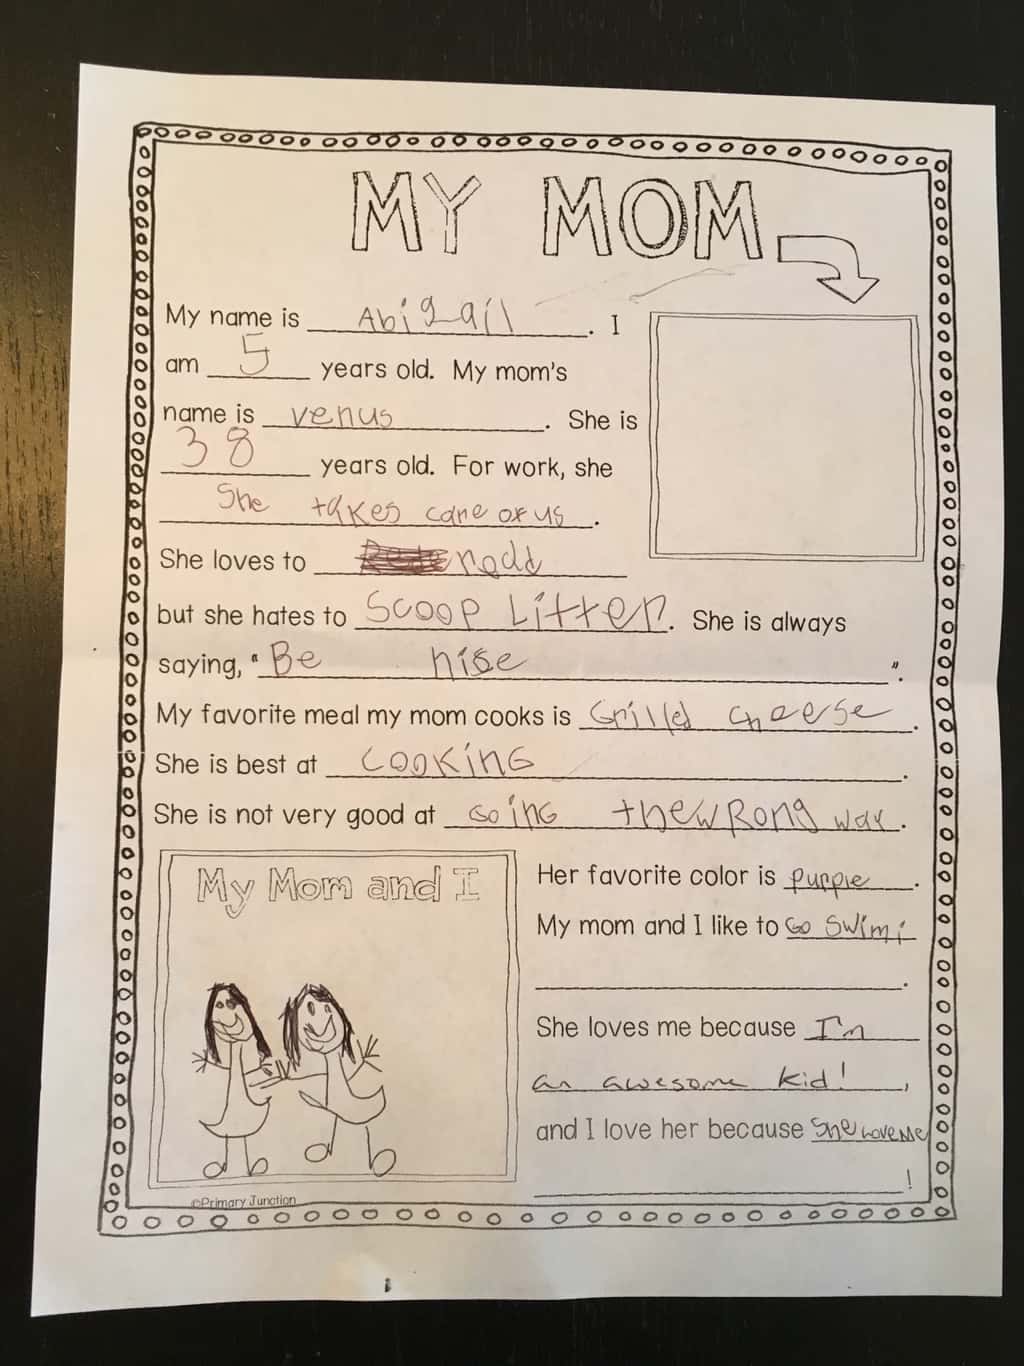 MY MOM
My name is Abigail. I
am 5 years old. My mom's
name is venus. She is
38 years old. For work, she
She takes care of us.
She loves to radd
but she hates to Scoop Litter. She is always
saying, "Be nise".
My favorite meal my mom cooks is Grilled cheese.
She is best at cooking.
She is not very good at Going the wrong way.
My Mom and I
Her favorite color is purple.
My mom and I like to Go Swimi
.
She loves me because I'm
an awesome kid!,
and I love her because She Loves Me
!
©Primary Junction